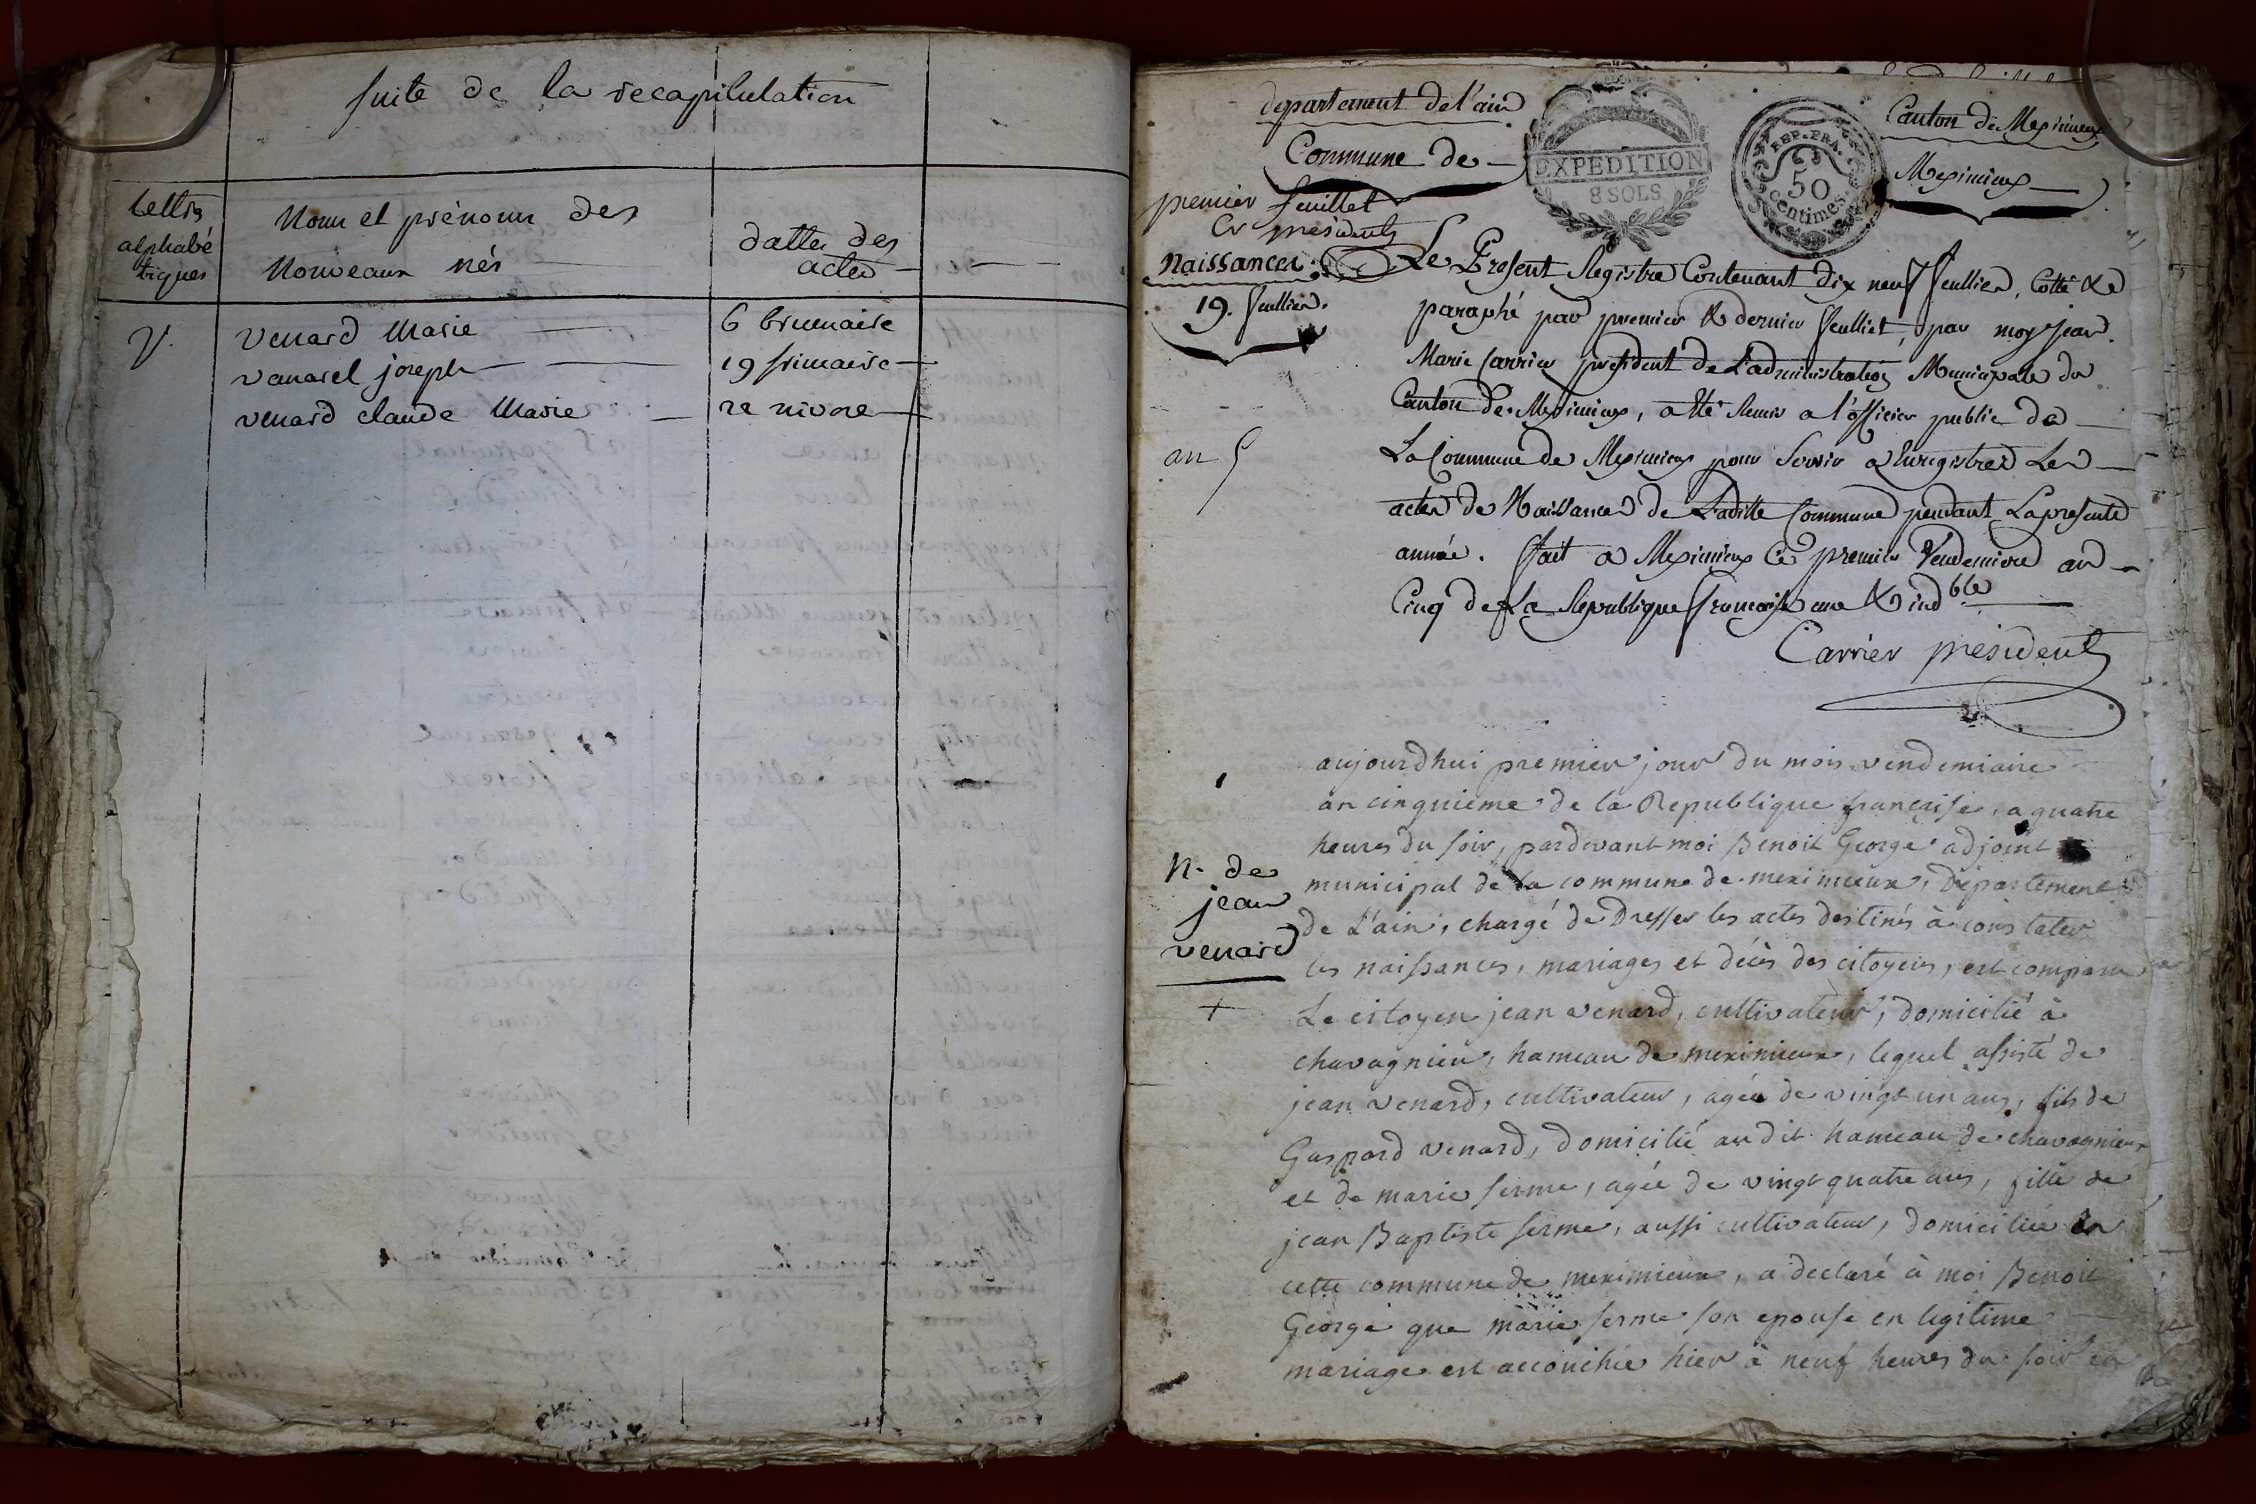 suite de la recapitulation
lettres
alphabé
tiques
Noms et prénoms des
Nouveaux nés
dattes des
actes
V.
venard Marie
6 brumaire
vanarel joseph
19 frimaire
venard claude Marie
22 nivose
departement de l'ain
Canton de Meximieux
Commune de
Meximieux
EXPEDITION
8 SOLS
REP. FRA.
50
centimes
premier feuillet
Cr président
Naissances.
19. feuillies.
Le Présent Registre Contenant dix neuf feuillies, Cotté &
paraphé par premier & dernier feuillet, par moy jean
Marie Carrier président de L'administration Municipale du
Canton de Meximieux, a été remis a l'officier public de
La Commune de Meximieux pour Servir a Enregistrer Les
actes de Naissances de Laditte Commune pendant La presente
année. fait a Meximieux Ce premier Vendemiere an
Cinq de La Republique francaise une & indble
an 5
Carrier président
aujourdhui premier jour du mois vendemiaire
an cinquieme de la Republique française, a quatre
heures du soir, pardevant moi Benoit George adjoint
municipal de la commune de meximieux, Département
de L'ain, chargé de Dresser les actes destinés à constater
les naissances, mariages et décès des citoyens, est comparu
Le citoyen jean venard, cultivateur, domicilié à
chavagnieu, hameau de meximieux, lequel assisté de
jean venard, cultivateur, agée de vingt un ans, fils de
Gaspard venard, domicilié au dit hameau de chavagnieux
et de marie ferme, agée de vingt quatre ans, fille de
jean Baptiste ferme, aussi cultivateur, domiciliée en
cette commune de meximieux, a declaré à moi Benoit
George que marie ferme son epouse en legitime
mariage est accouchée hier à neuf heures du soir en
N. de
jean
venard
+